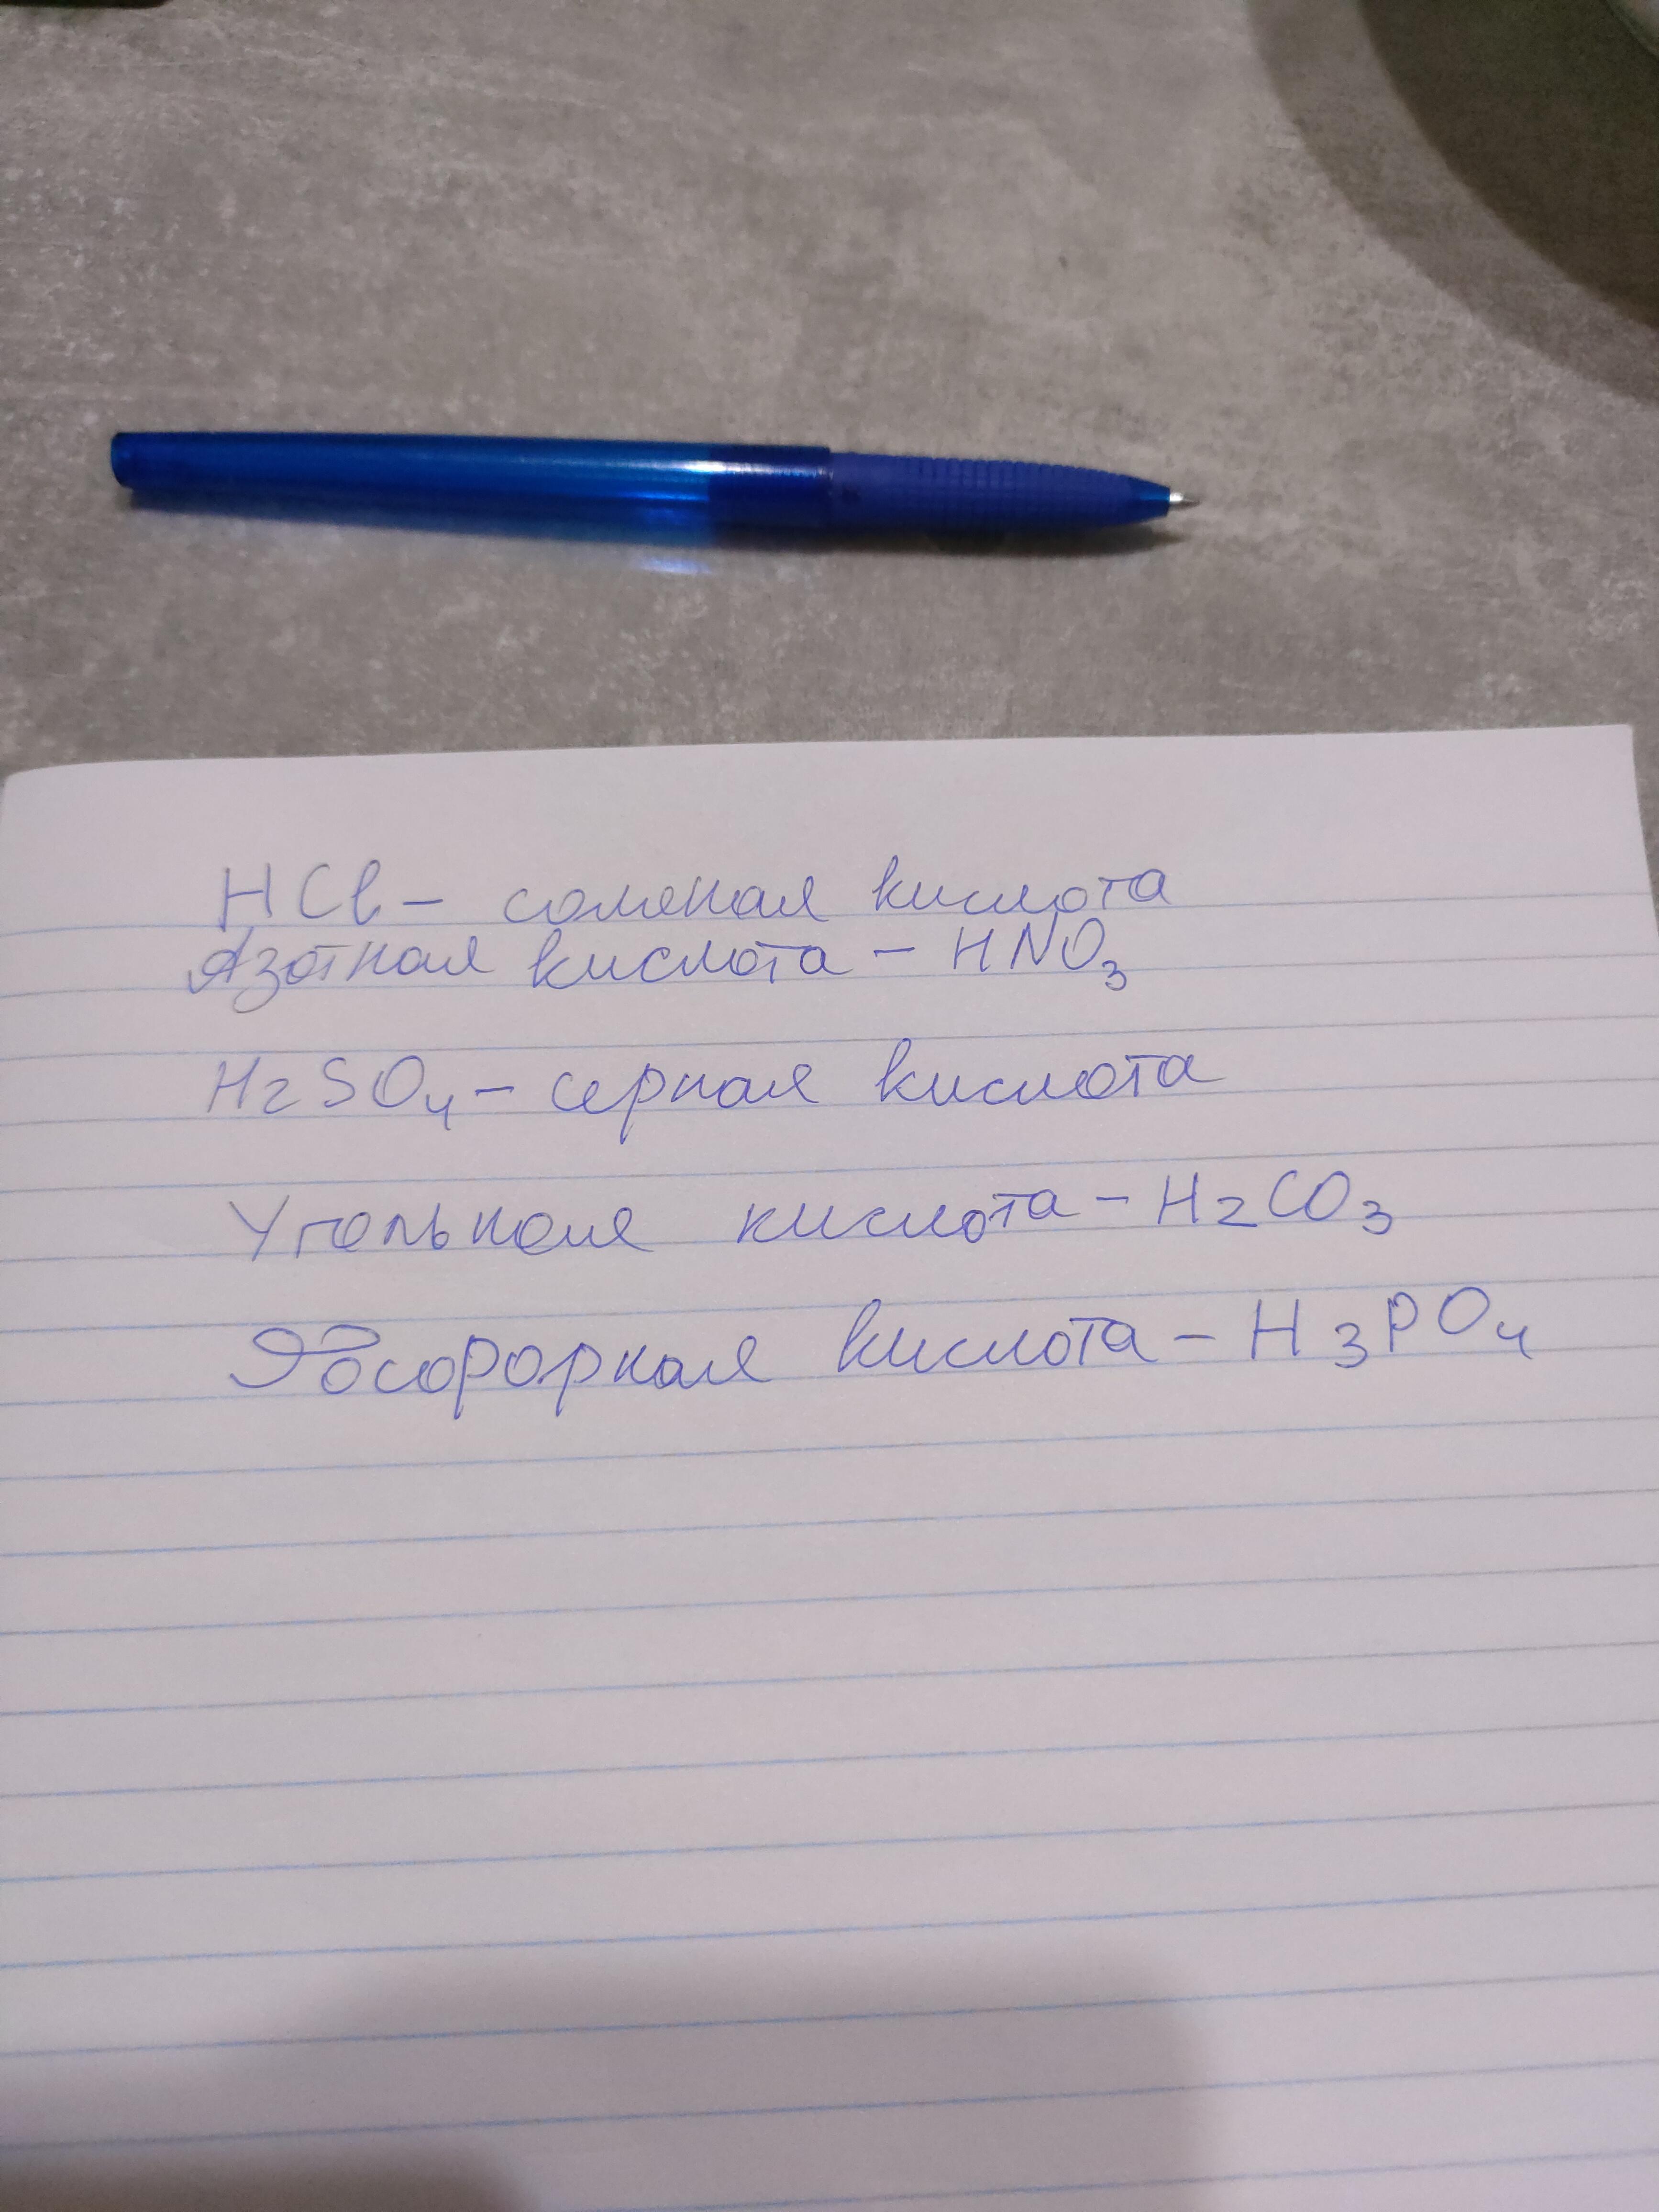 HCl – соляная кислота
Азотная кислота – HNO₃
H₂SO₄ – серная кислота
Угольная кислота – H₂CO₃
Фосфорная кислота – H₃PO₄